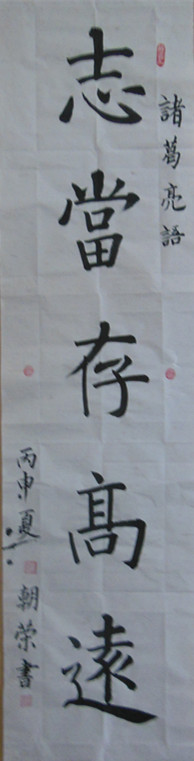 諸葛亮語
志當存高遠
丙申夏
朝荣書